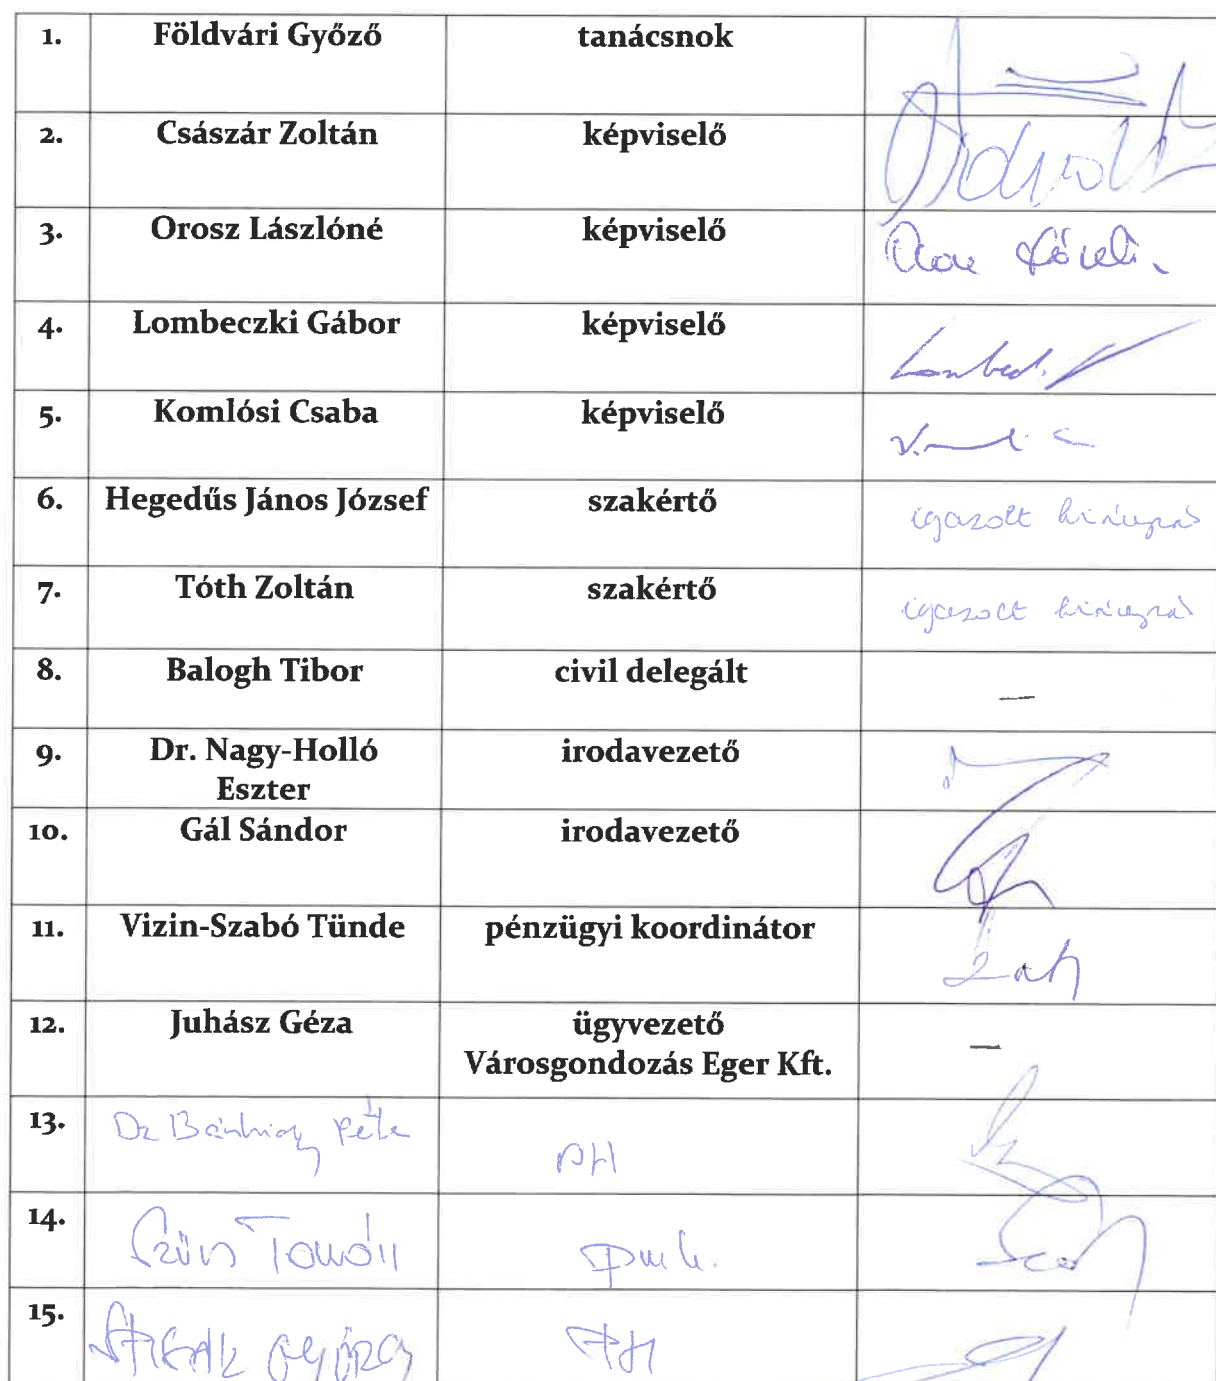 1. Földvári Győző tanácsnok
2. Császár Zoltán képviselő
3. Orosz Lászlóné képviselő
4. Lombeczki Gábor képviselő
5. Komlósi Csaba képviselő
6. Hegedűs János József szakértő igazolt hiányzás
7. Tóth Zoltán szakértő igazolt hiányzás
8. Balogh Tibor civil delegált –
9. Dr. Nagy-Holló irodavezető
Eszter
10. Gál Sándor irodavezető
11. Vizin-Szabó Tünde pénzügyi koordinátor
12. Juhász Géza ügyvezető –
Városgondozás Eger Kft.
13. Dr Péter PH
14. Szűcs Tamás
15. PH